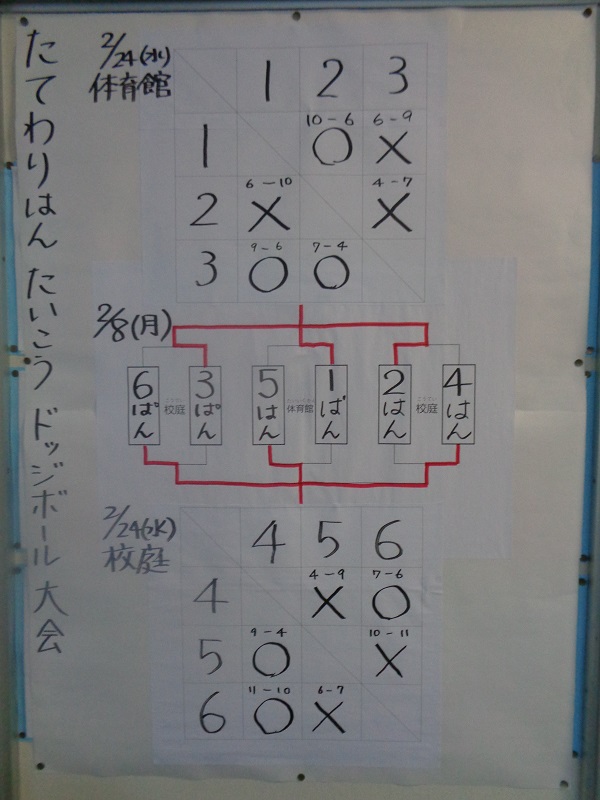 たてわりはん たいこう ドッジボール 大会
2/24(水)
体育館
1 2 3
1 10-6 ○ 6-9 ×
2 6-10 × 4-7 ×
3 9-6 ○ 7-4 ○
2/8(月)
6ぱん 校庭 3ぱん 5はん 体育館 1ぱん 2はん 校庭 4はん
2/24(水)
校庭
4 5 6
4 4-9 × 7-6 ○
5 9-4 ○ 10-11 ×
6 11-10 ○ 6-7 ×